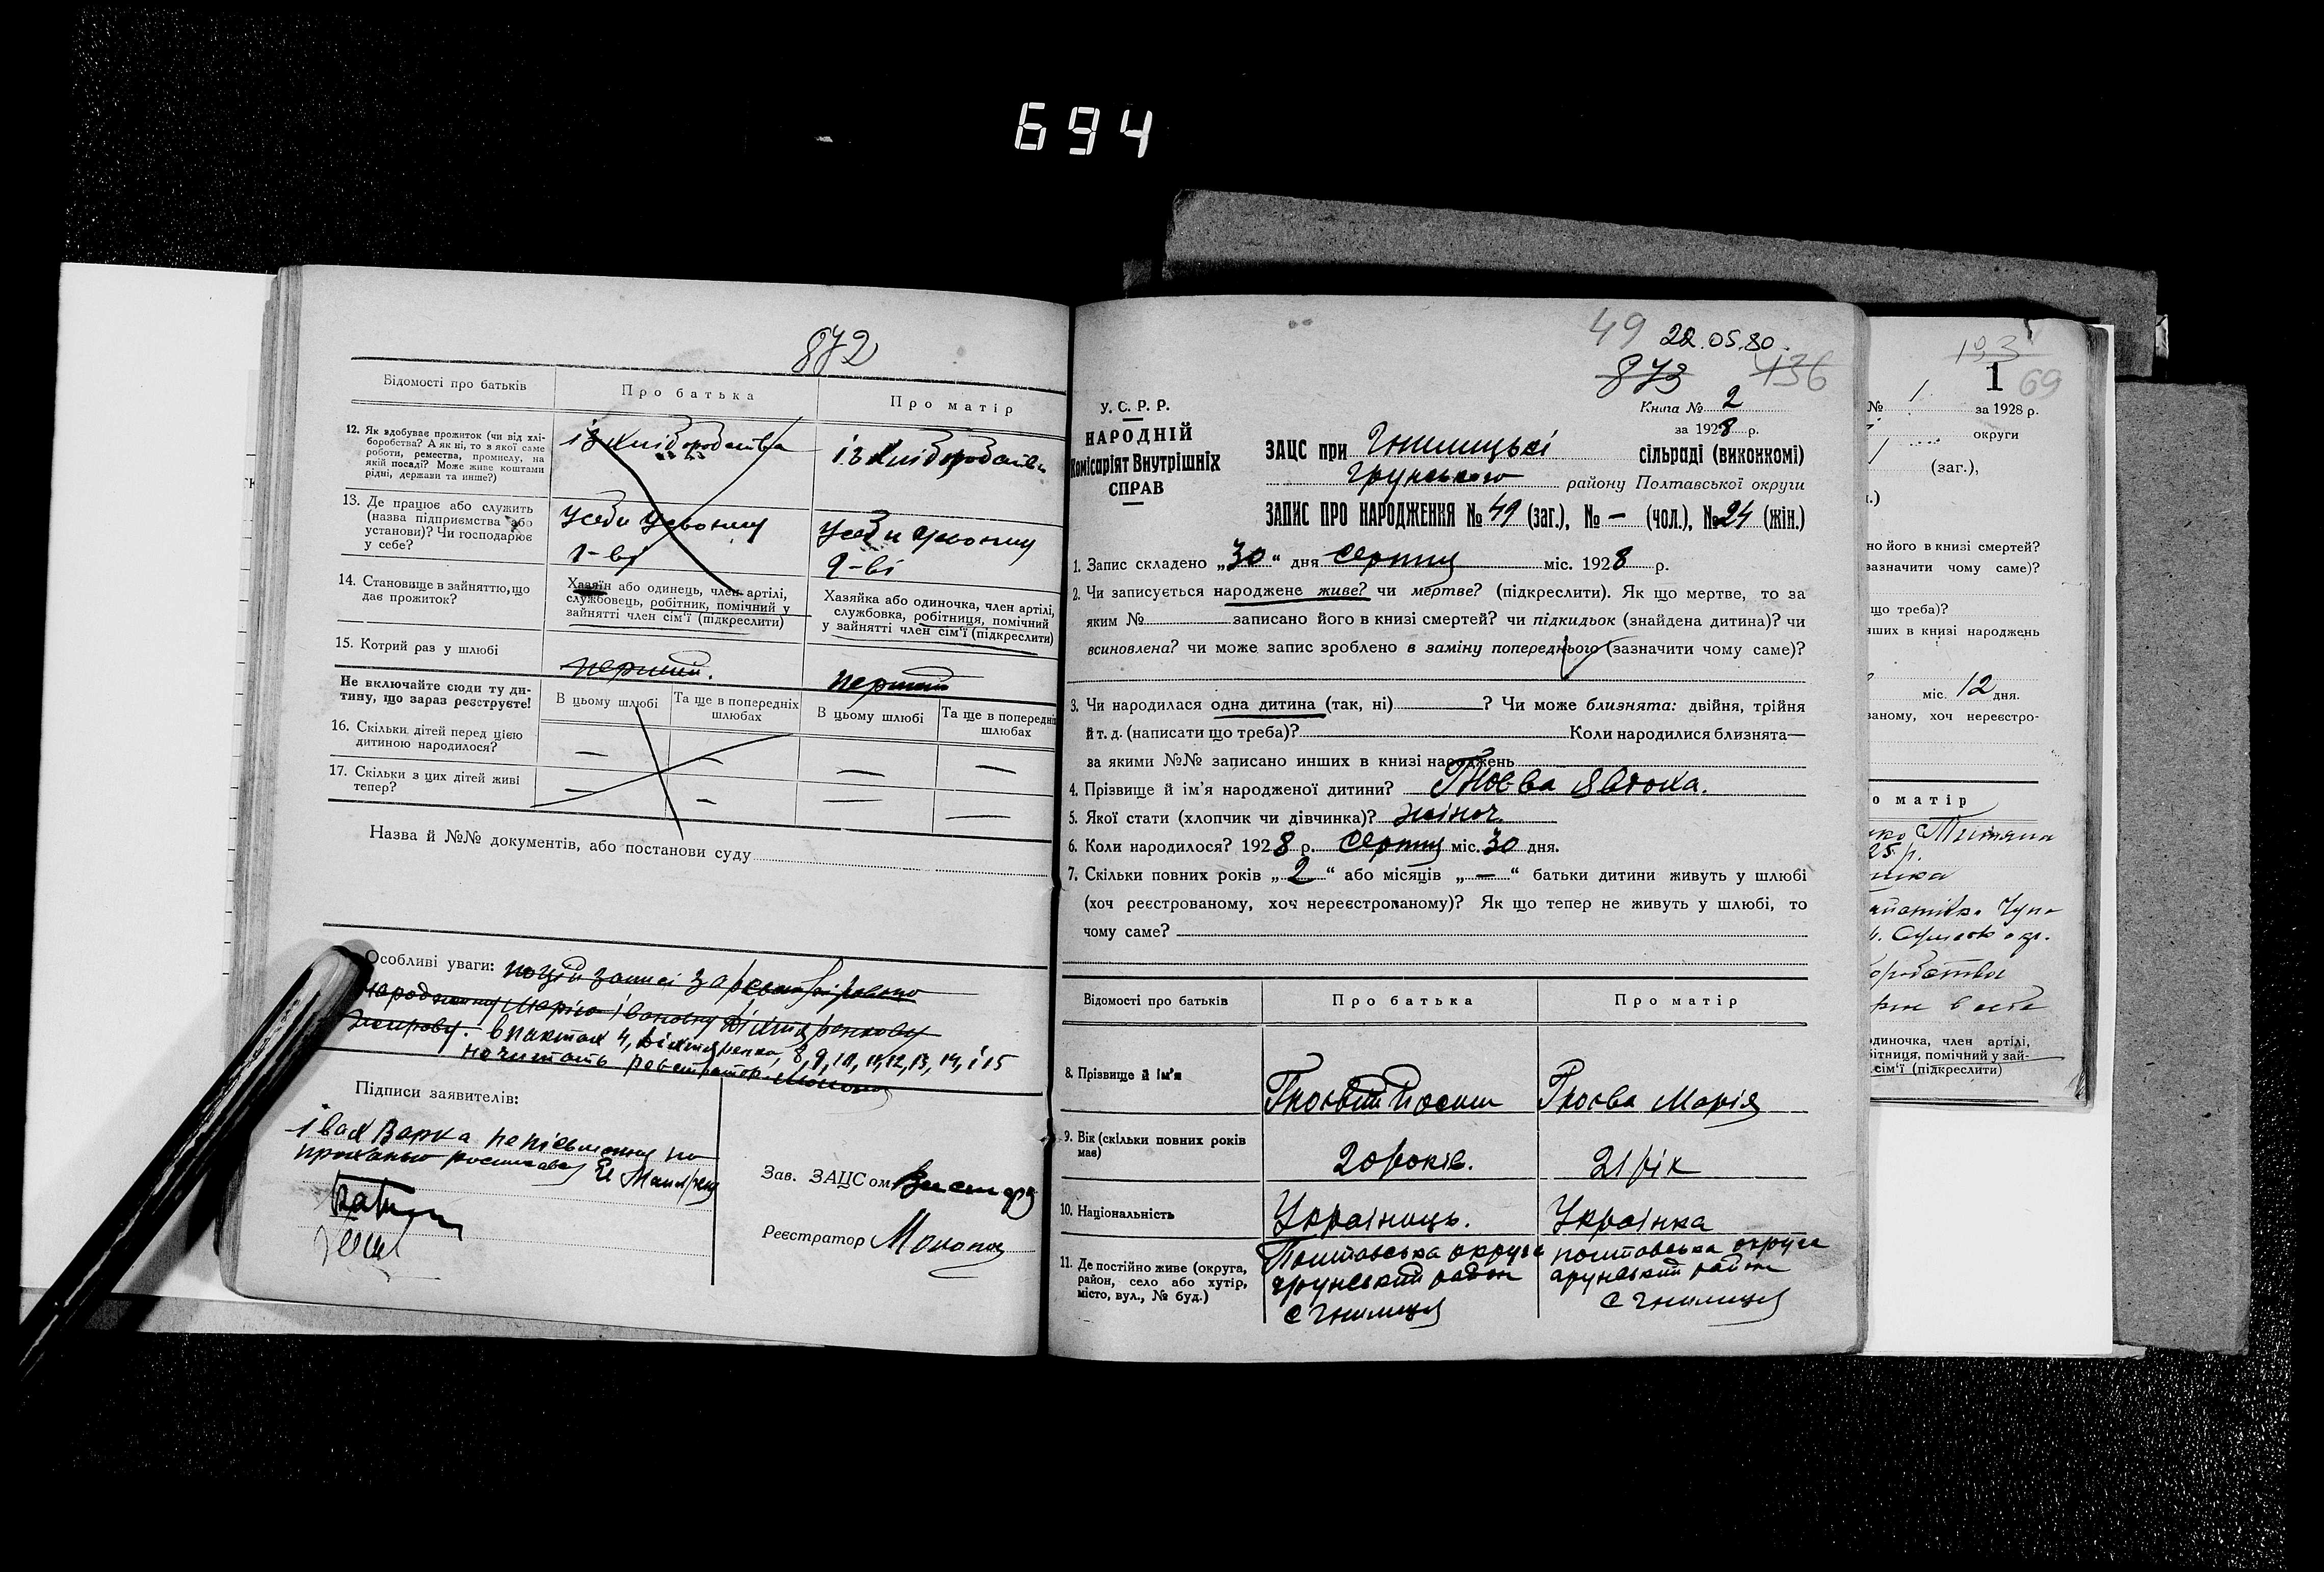 694
872
Відомості про батьків
Про батька
Про матір
12. Як здобуває прожиток (чи від хлі-
боробства? А як ні, то з якої саме
роботи, ремества, промислу, на
якій посаді? Може живе коштами
рідні, держави та инше?)
із хліборобства
із хліборобства
13. Де працює або служить
(назва підприємства або
установи)? Чи господарює
у себе?
14. Становище в зайняттю, що
дає прожиток?
Хазяїн або одинець, член артілі,
службовець, робітник, помічний у
зайнятті член сім'ї (підкреслити)
Хазяйка або одиночка, член артілі,
службовка, робітниця, помічний
у зайнятті член сім'ї (підкреслити)
15. Котрий раз у шлюбі
перший.
перший
Не включайте сюди ту ди-
тину, що зараз реєструєте!
В цьому шлюбі
Та ще в попередніх
шлюбах
В цьому шлюбі
Та ще в попередніх
шлюбах
16. Скільки дітей перед цією
дитиною народилося?
— — — —
17. Скільки з цих дітей живі
тепер?
— — — —
Назва й №№ документів, або постанови суду
Особливі уваги: по цій записі
в пактах 4, 8, 9, 10, 11, 12, 13, 14, і 15
не читать
Підписи заявителів:
Варка неписьменна по
Зав. ЗАЦСом
Реєстратор
49 22.05.80.
873 136
У. С. Р. Р.
НАРОДНІЙ
Комісаріят Внутрішніх
СПРАВ
Книга № 2
за 1928 р.
ЗАЦС при Гнилицькі сільраді (виконкомі)
Грунського району Полтавської округи
ЗАПИС ПРО НАРОДЖЕННЯ № 49 (заг.), № — (чол.), № 24 (жін.)
1. Запис складено „30“ дня серпня міс. 1928 р.
2. Чи записується народжене живе? чи мертве? (підкреслити). Як що мертве, то за
яким № записано його в книзі смертей? чи підкидьок (знайдена дитина)? чи
всиновлена? чи може запис зроблено в заміну попереднього (зазначити чому саме)?
3. Чи народилася одна дитина (так, ні) ? Чи може близнята: двійня, трійня
й т. д. (написати що треба)? Коли народилися близнята—
за якими №№ записано инших в книзі народжень
4. Прізвище й ім'я народженої дитини? Гноєва Явдоха.
5. Якої стати (хлопчик чи дівчинка)? жіноч.
6. Коли народилося? 1928 р. серпня міс. 30 дня.
7. Скільки повних років „2“ або місяців „—“ батьки дитини живуть у шлюбі
(хоч реєстрованому, хоч нереєстрованому)? Як що тепер не живуть у шлюбі, то
чому саме?
Відомості про батьків
Про батька
Про матір
8. Прізвище й ім'я
Гноєвий Йосип
Гноєва Марія
9. Вік (скільки повних років
має)
20 років.
21 рік
10. Національність
Українець.
Українка
11. Де постійно живе (округа,
район, село або хутір,
місто, вул., № буд.)
Полтавська округа
грунський район
с Гнилиця
полтавська округа
грунський район
с Гнилиця
193
1 69
№ 1 за 1928 р.
округи
(заг.),
но його в книзі смертей?
зазначити чому саме)?
що треба)?
нших в книзі народжень
міс. 12 дня.
ваному, хоч нереєстро-
о матір
Тетяна
25 р.
диночка, член артілі,
бітниця, помічний у зай-
сім'ї (підкреслити)